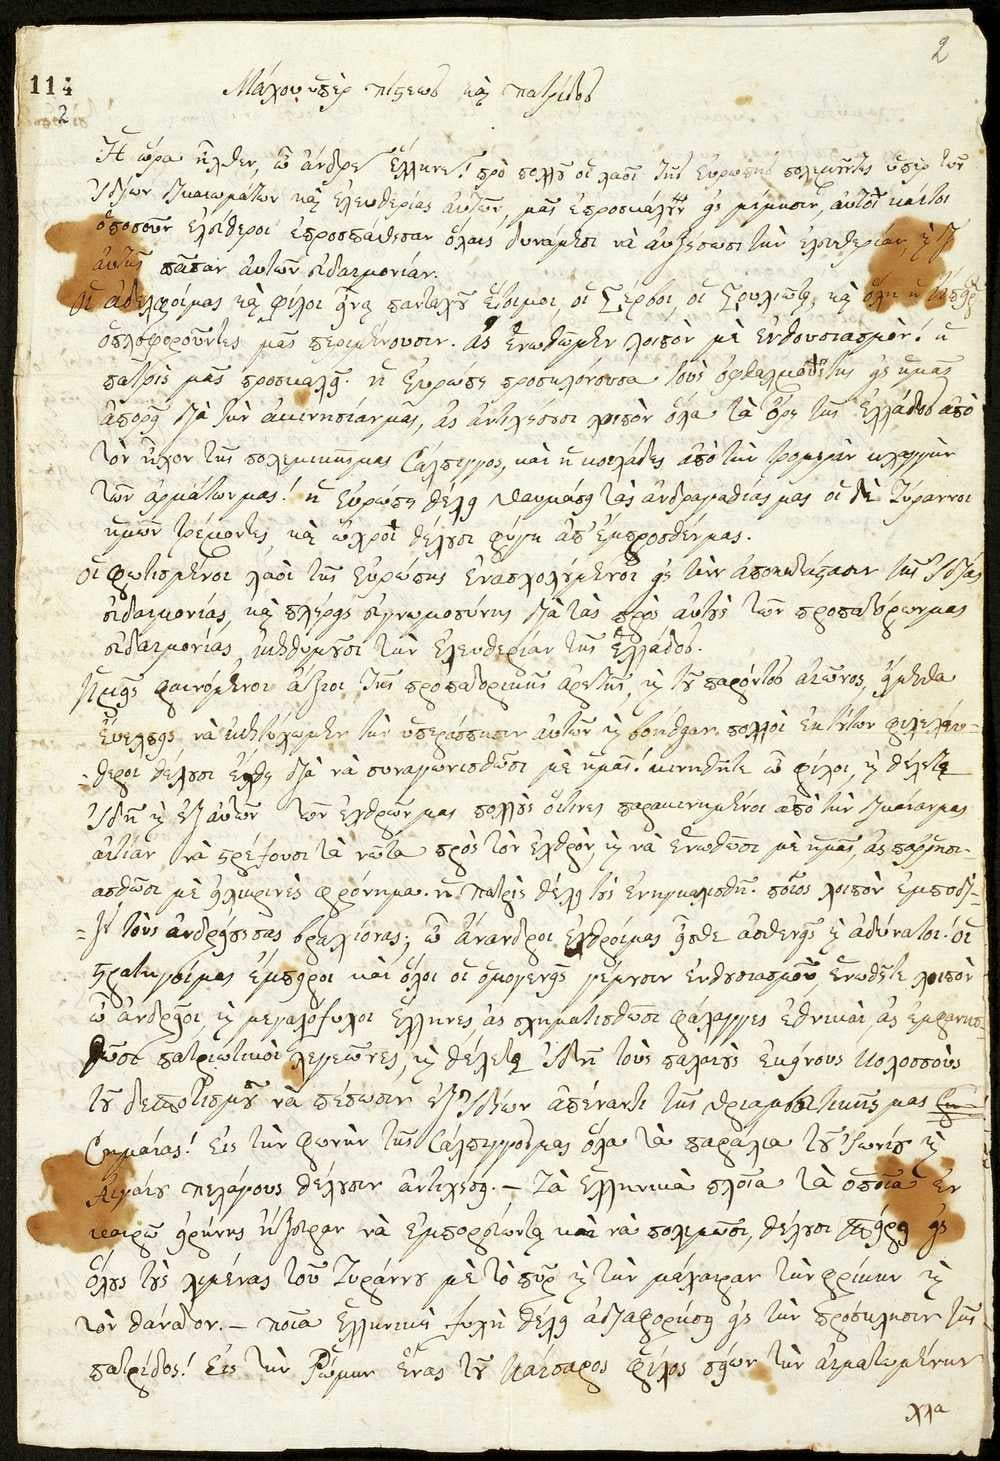 2
114
2
Μάχου ὑπὲρ πίστεως καὶ πατρίδος
Ἡ ὥρα ἦλθεν, ὦ ἄνδρες Ἕλληνες! πρὸ πολλοῦ οἱ λαοὶ τῆς Εὐρώπης πολεμοῦντες ὑπὲρ τῶν
ἰδίων δικαιωμάτων καὶ ἐλευθερίας αὐτῶν, μᾶς ἐπροσκάλουν εἰς μίμησιν, αὐτοὶ καίτοι
ὁπωσοῦν ἐλεύθεροι ἐπροσπάθησαν ὅλαις δυνάμεσι νὰ αὐξήσωσι τὴν ἐλευθερίαν, καὶ δι'
αὐτῆς πᾶσαν αὐτῶν εὐδαιμονίαν.
Οἱ ἀδελφοίμας καὶ φίλοι εἶναι πανταχοῦ ἕτοιμοι, οἱ Σέρβοι, οἱ Σουλιῶται, καὶ ὅλη ἡ Ἤπειρος
ὁπλοφοροῦντες μᾶς περιμένουσιν. ἂς ἑνωθῶμεν λοιπὸν μὲ ἐνθουσιασμόν! ἡ
πατρὶς μᾶς προσκαλεῖ. ἡ Εὐρώπη προσηλόνουσα τοὺς ὀφθαλμούς της εἰς ἡμᾶς
ἀπορεῖ διὰ τὴν ἀκινησίαν μας, ἂς ἀντηχήσωσι λοιπὸν ὅλα τὰ ὄρη τῆς Ἑλλάδος ἀπὸ
τὸν ἦχον τῆς πολεμικῆς μας σάλπιγγος, καὶ ἡ κοιλάδες ἀπὸ τὴν τρομερὰν κλαγγὴν
τῶν ἁρμάτων μας! ἡ Εὐρώπη θέλει θαυμάσῃ τὰς ἀνδραγαθίας μας οἱ δὲ Τύραννοι
ἡμῶν τρέμοντες καὶ ὠχροὶ θέλουσι φύγῃ ἀπ' ἔμπροσθέν μας.
Οἱ φωτισμένοι λαοὶ τῆς Εὐρώπης ἐνασχολημένοι εἰς τὴν ἀποκατάστασιν τῆς ἰδίας
εὐδαιμονίας, καὶ πλήρεις εὐγνωμοσύνης διὰ τὰς πρὸς αὐτοὺς τῶν προπατόρων μας
εὐδαιμονίας, ἐπιθυμοῦσι τὴν ἐλευθερίαν τῆς Ἑλλάδος.
Ἡμεῖς φαινόμενοι ἄξιοι τῆς προπατορικῆς ἀρετῆς, καὶ τοῦ παρόντος αἰῶνος, εἴμεθα
εὐέλπεις νὰ ἐπιτύχωμεν τὴν ὑπεράσπισιν αὐτῶν καὶ βοήθειαν. πολλοὶ ἐκ τούτων φιλελεύ-
θεροι θέλουσι ἔλθῃ διὰ νὰ συναγωνισθῶσι μὲ ἡμᾶς! κινηθῆτε ὦ φίλοι, καὶ θέλετε
ἰδῆ καὶ ἐξ αὐτῶν τῶν ἐχθρῶν μας πολλοὺς οἵτινες παρακινημένοι ἀπὸ τὴν δικαίαν μας
αἰτίαν νὰ στρέψουσι τὰ νῶτα πρὸς τὸν ἐχθρὸν, καὶ νὰ ἑνωθῶσι μὲ ἡμᾶς, ἂς παῤῥησι-
ασθῶσι μὲ εἰλικρινὲς φρόνημα. ἡ πατρὶς θέλει τοὺς ἐναγκαλισθῆ. ποῖος λοιπὸν ἐμποδί-
ζει τοὺς ἀνδρείους σας βραχίονας; ὦ ἄνανδροι ἐχθροί μας εἶσθε ἀσθενεῖς καὶ ἀδύνατοι. οἱ
στρατηγοί μας ἔμπειροι καὶ ὅλοι οἱ ὁμογενεῖς γέμουσιν ἐνθουσιασμοῦ, ἑνωθῆτε λοιπὸν
ὦ ἀνδρεῖοι, καὶ μεγαλόψυχοι Ἕλληνες, ἂς σχηματισθῶσι φάλαγγες ἐθνικαὶ, ἂς ἐμφανισ-
θῶσι πατριωτικαὶ λεγεῶνες, καὶ θέλετε ἰδῆ τοὺς παλαιοὺς ἐκείνους κολοσσοὺς
τοῦ δεσποτισμοῦ νὰ πέσωσιν ἐξ ἰδίων ἀπέναντι τῆς θριαμβευτικῆς μας
σημαίας! Εἰς τὴν φωνὴν τῆς Σάλπιγγος μας ὅλα τὰ παράλια τοῦ Ἰωνίου καὶ
Αἰγαίου πελάγους θέλουσιν ἀντιχήσῃ. — Τὰ ἑλληνικὰ πλοῖα τὰ ὁποῖα ἐν
καιρῷ εἰρήνης ἤξευραν νὰ ἐμπορεύωνται καὶ νὰ πολεμῶσι, θέλουσι σπείρῃ εἰς
ὅλους τοὺς λιμένας τοῦ Τυράννου μὲ τὸ πῦρ καὶ τὴν μάχαιραν τὴν φρίκην καὶ
τὸν θάνατον. — ποία ἑλληνικὴ ψυχὴ θέλει ἀδιαφορήσῃ εἰς τὴν πρόσκλησιν τῆς
πατρίδος! Εἰς τὴν Ῥώμην ἕνας τοῦ Καίσαρος φίλος σείων τὴν αἱματωμένην
χλα